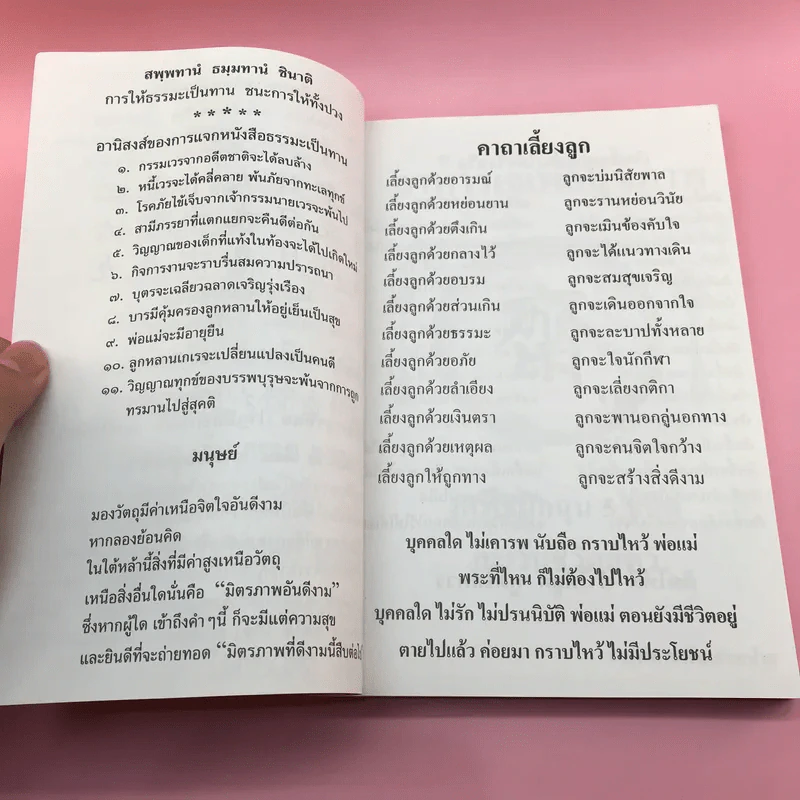 สพฺพทานํ ธมฺมทานํ ชินาติ
การให้ธรรมะเป็นทาน ชนะการให้ทั้งปวง
*****
อานิสงส์ของการแจกหนังสือธรรมะเป็นทาน
๑. กรรมเวรจากอดีตชาติจะได้ลบล้าง
๒. หนี้เวรจะได้คลี่คลาย พ้นภัยจากทะเลทุกข์
๓. โรคภัยไข้เจ็บจากเจ้ากรรมนายเวรจะพ้นไป
๔. สามีภรรยาที่แตกแยกจะคืนดีต่อกัน
๕. วิญญาณของเด็กที่แท้งในท้องจะได้ไปเกิดใหม่
๖. กิจการงานจะราบรื่นสมความปรารถนา
๗. บุตรจะเฉลียวฉลาดเจริญรุ่งเรือง
๘. บารมีคุ้มครองลูกหลานให้อยู่เย็นเป็นสุข
๙. พ่อแม่จะมีอายุยืน
๑๐. ลูกหลานเกเรจะเปลี่ยนแปลงเป็นคนดี
๑๑. วิญญาณทุกข์ของบรรพบุรุษจะพ้นจากการถูก
ทรมานไปสู่สุคติ
มนุษย์
มองวัตถุมีค่าเหนือจิตใจอันดีงาม
หากลองย้อนคิด
ในใต้หล้านี้สิ่งที่มีค่าสูงเหนือวัตถุ
เหนือสิ่งอื่นใดนั่นคือ “มิตรภาพอันดีงาม”
ซึ่งหากผู้ใด เข้าถึงคำ ๆนี้ ก็จะมีแต่ความสุข
และยินดีที่จะถ่ายทอด “มิตรภาพที่ดีงามนี้สืบต่อ
คาถาเลี้ยงลูก
เลี้ยงลูกด้วยอารมณ์ ลูกจะบ่มนิสัยพาล
เลี้ยงลูกด้วยหย่อนยาน ลูกจะรานหย่อนวินัย
เลี้ยงลูกด้วยตึงเกิน ลูกจะเมินข้องคับใจ
เลี้ยงลูกด้วยกลางไว้ ลูกจะได้แนวทางเดิน
เลี้ยงลูกด้วยอบรม ลูกจะสมสุขเจริญ
เลี้ยงลูกด้วยส่วนเกิน ลูกจะเดินออกจากใจ
เลี้ยงลูกด้วยธรรมะ ลูกจะละบาปทั้งหลาย
เลี้ยงลูกด้วยอภัย ลูกจะใจนักกีฬา
เลี้ยงลูกด้วยลำเอียง ลูกจะเลี่ยงกติกา
เลี้ยงลูกด้วยเงินตรา ลูกจะพานอกลู่นอกทาง
เลี้ยงลูกด้วยเหตุผล ลูกจะคนจิตใจกว้าง
เลี้ยงลูกให้ถูกทาง ลูกจะสร้างสิ่งดีงาม
บุคคลใด ไม่เคารพ นับถือ กราบไหว้ พ่อแม่
พระที่ไหน ก็ไม่ต้องไปไหว้
บุคคลใด ไม่รัก ไม่ปรนนิบัติ พ่อแม่ ตอนยังมีชีวิตอยู่
ตายไปแล้ว ค่อยมา กราบไหว้ ไม่มีประโยชน์